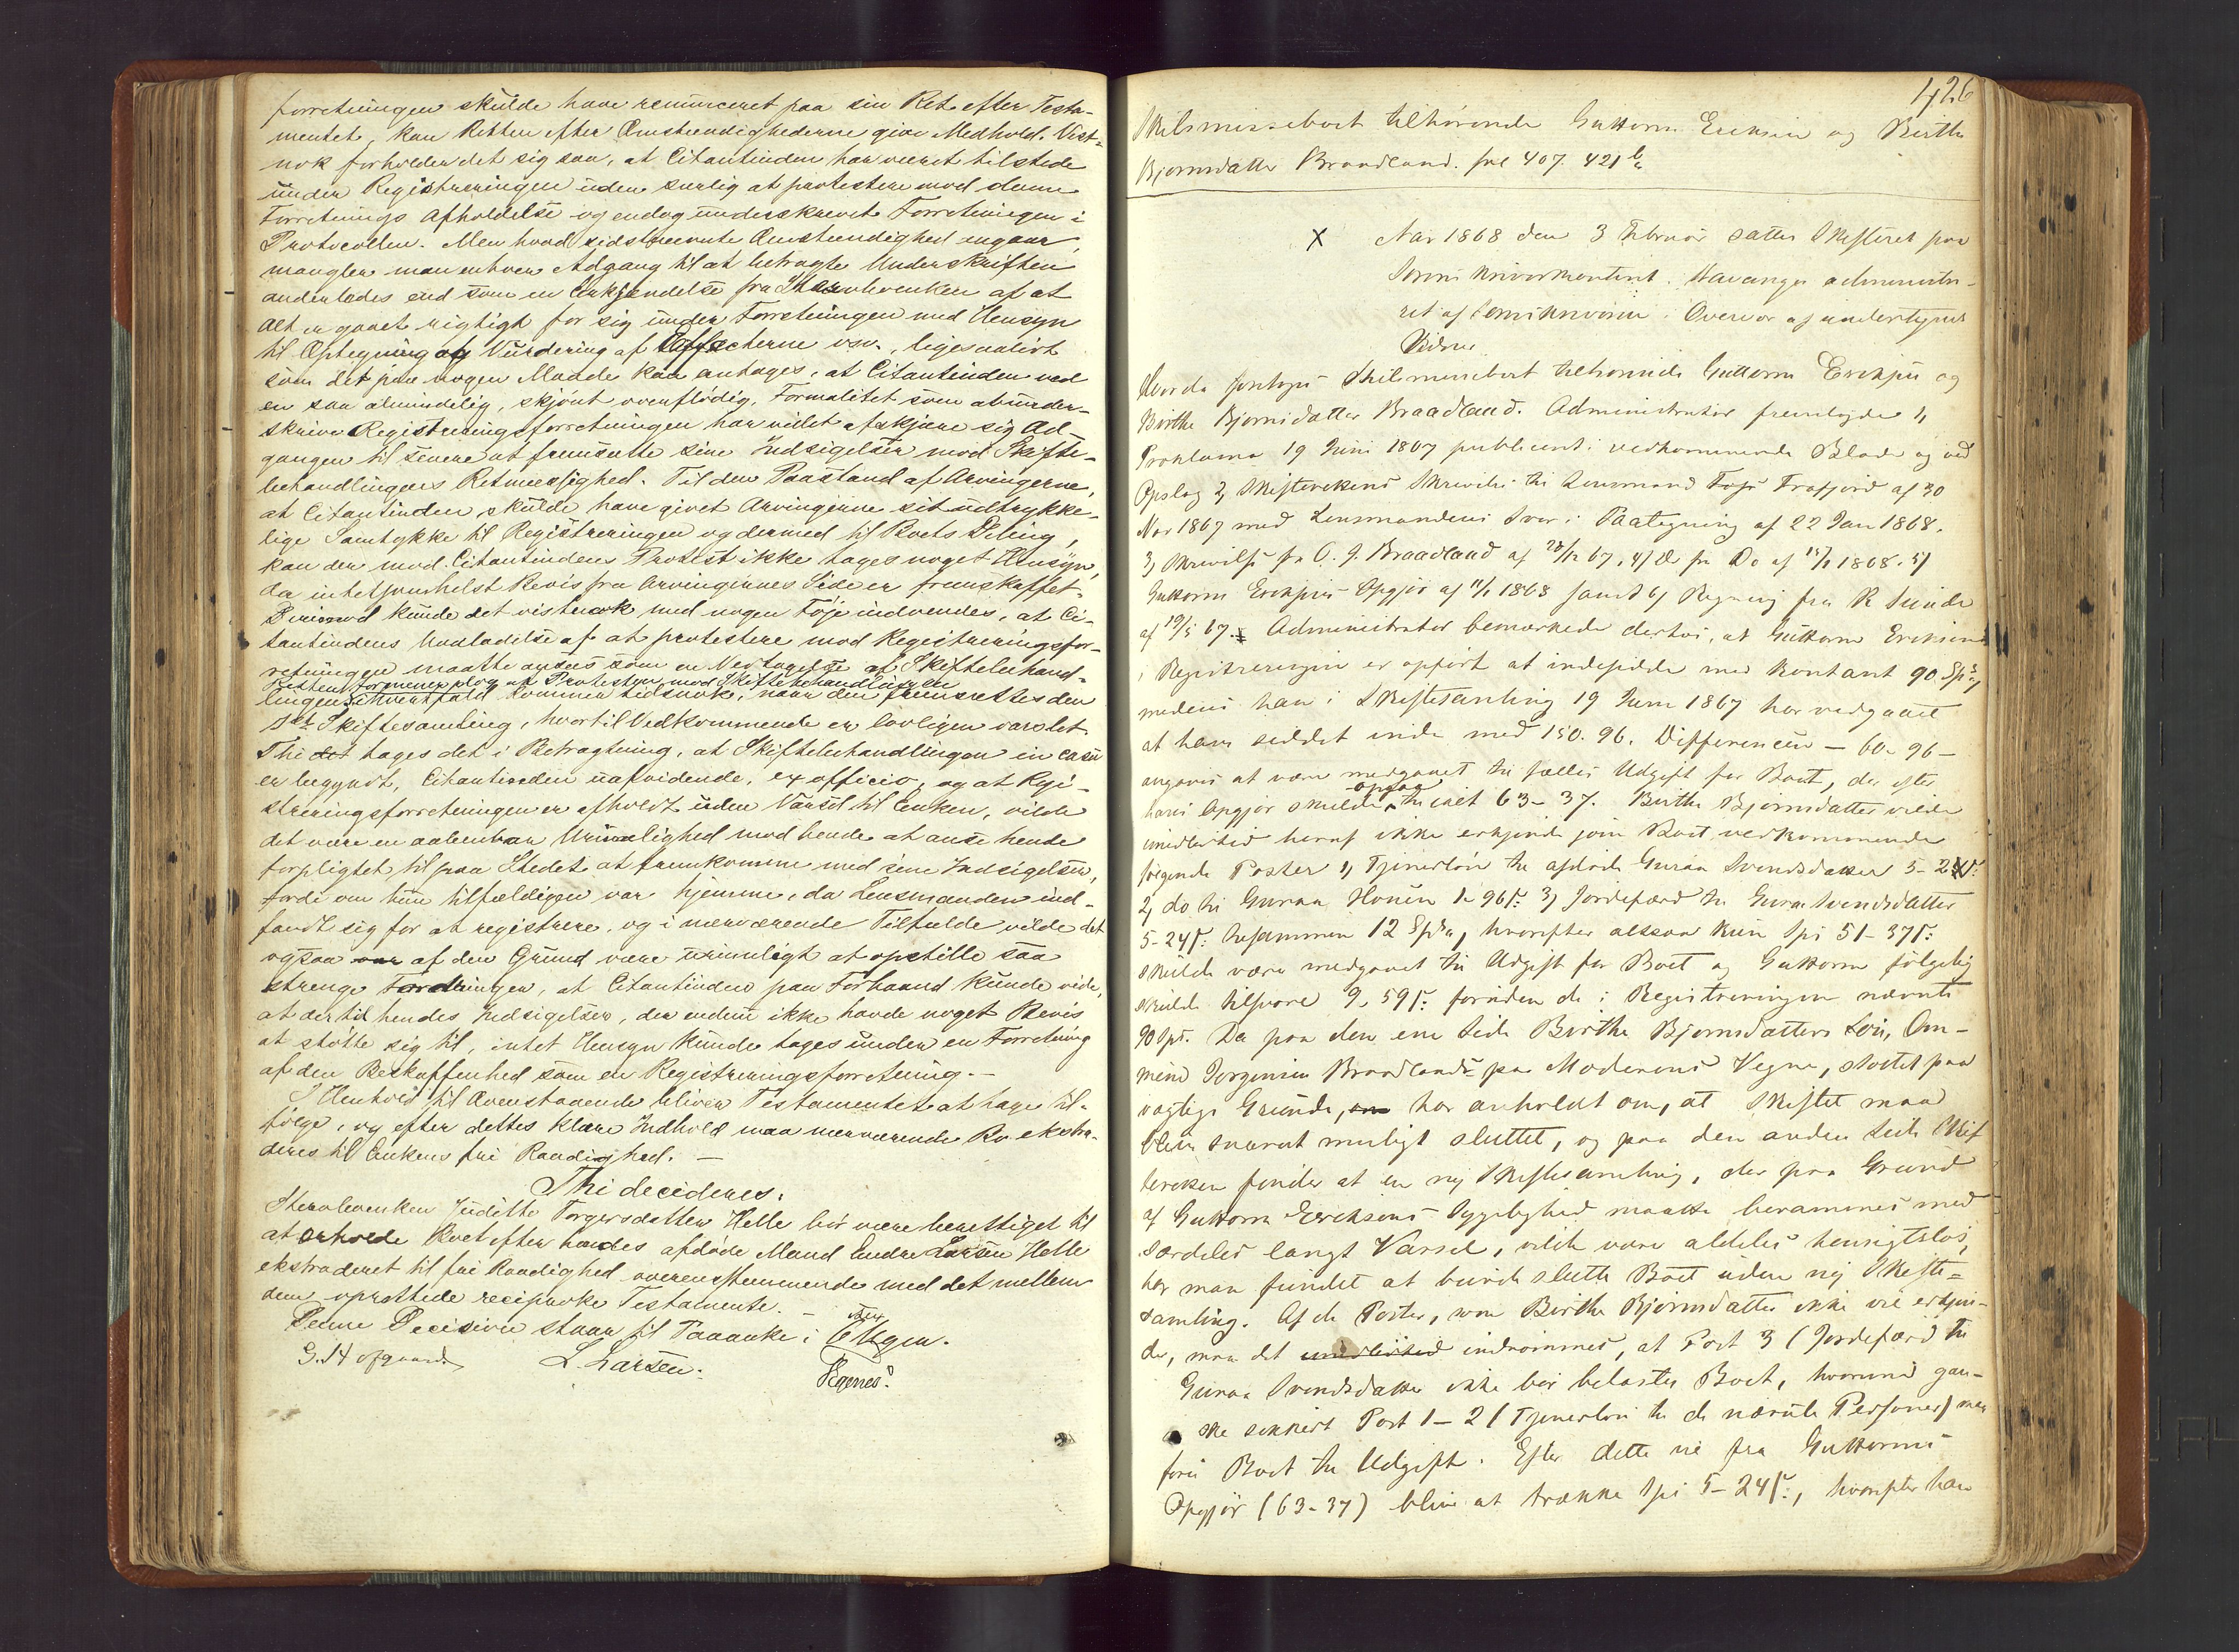 forretningen skulde have renunceret paa sin Ret efter Testa-
mentet, kan Retten efter Omstændighederne give Medhold. Vist-
nok forholder det sig saa, at Citantinden har været tilstede
under Registreringen uden særlig at protestere mod denne
Forretnings Afholdelse og endog underskrevet Forretningen i
Protocollen. Men hvad sidstnævnte Omstændighed angaar,
mangler man enhver Adgang til at betragte Underskriften
anderledes end som en Erkjendelse fra Stervboenken af at
Alt er gaaet rigtigt for sig under Forretningen med Hensyn
til Optegning og Vurdering af Effecterne osv., ligesaalidt
som det paa nogen Maade kan antages, at Citantinden ved
en saa almindelig, skjønt overflødig, Formalitet som at under-
skrive Registreringsforretningen har villet afskjære sig Ad-
gangen til senere at fremsætte sine Indsigelser mod Skifte-
behandlingens Retmæssighed. Til den Paastand af Arvingerne,
at Citantinden skulde have givet Arvingerne sit udtrykke-
lige Samtykke til Registreringen og dermed til Boets Deling,
kan der mod Citantindens Protest ikke tages noget Hensyn,
da intetsomhelst Bevis fra Arvingernes Side er fremskaffet.
Derimod kunde det vistnok med nogen Føje indvendes, at Ci-
tantindens Undladelse af at protestere mod Registreringsfor-
retningen maatte ansees som en Vedtagelse af Skiftebehand-
Retten formener dog at Protesten mod Skiftebehandlingen
lingen i hvertfald kommer tidsnok, naar den fremsættes den
1ste Skiftesamling, hvortil Vedkommende er lovligen varslet.
Thi det tages det i Betragtning, at Skiftebehandlingen in casu
er begyndt, Citantinden uafvidende, ex officio, og at Regi-
streringsforretningen er afholdt uden Varsel til Enken, vilde
det være en aabenbar Urimelighed mod hende at anse hende
forpligtet til paa Stedet at fremkomme med sine Indsigelser,
fordi om hun tilfældigen var hjemme, da Lensmanden ind-
fandt sig for at registrere, og i nærværende Tilfælde vilde det
ogsaa af den Grund være urimeligt at opstille saa
strenge Fordringer, at Citantinden paa Forhaand kunde vide,
at der til hendes Indsigelser, der endnu ikke havde noget Bevis
at støtte sig til, intet Hensyn kunde tages under en Forretning
af den Beskaffenhed som en Registreringsforretning. –
I Henhold til Ovenstaaende bliver Testamentet at tage til-
følge, og efter dettes klare Indhold maa nærværende Bo ekstra-
deres til Enkens fri Raadighed. –
Thi decideres:
Stervboenken Juditte Torgersdatter Helle bør være berettiget til
at erholde Boet efter hendes afdøde Mand Endre Larsen Helle
ekstraderet til fri Raadighed overensstemmende med det mellem
dem oprettede reciproke Testamente. –
Denne Decision staar til Paaanke i 6 Uger.
L. Larsen.
426
Skilsmisseboet tilhørende Guttorm Eriksen og Birthe
Bjørnsdatter Braadland. fol 407. 421 b
X Aar 1868 den 3 Februar sattes Skifteret paa
Sorenskriverkontoret i Stavanger administre-
ret af Sorenskriveren i Overvær af undertegnede
Vidner.
Hvorda foretoges Skilsmisseboet tilhørende Guttorm Eriksen og
Birthe Bjørnsdatter Braadland. Administrator fremlagde 1,
Proklama 19 Juni 1867 publiceret i vedkommende Blade og ved
Opslag 2, Skifterettens Skrivelse til Lensmand Frafjord af 30
Nov 1867 med Lensmandens Svar i Paategning af 22 Jan 1868.
3, Skrivelse fra O. J. Braadland af 28/12 67, 4, D. fra Do af 1868. 5,
Guttorm Eriksens Opgjør af 1868 samt 6, Regning fra R Sunde
af 19/5 67. Administrator bemærkede derhos, at Guttorm Eriksen
i Registreringen er opført at indesidde med Kontant 90 Spd,
medens han i Skiftesamling 19 Juni 1867 har vedgaaet
at have siddet inde med 150. 96. Differencen – 60. 96 –
angaves at være medgaaet til fælles Udgift for Boet, der efter
hans Opgjør skulde opgaa til ialt 63 – 37. Birthe Bjørnsdatter vilde
imidlertid heraf ikke erkjende som Boet vedkommende
følgende Poster 1, Tjenerløn til afdøde Guraa Svendsdatter 5 – 24 ſ:
2, do til Guraa Houen 1. 96 ſ: 3, Jordefærd til Guraa Svendsdatter
5 – 24 ſ: tilsammen 12 Spd, hvorefter altsaa kun Spd 51 – 37 ſ:
skulde være medgaaet til Udgift for Boet og Guttorm følgelig
skulde tilsvare 9. 59 ſ: foruden de i Registreringen nævnte
90 Spd. Da paa den ene Side Birthe Bjørnsdatters Søn, Om-
mund Jørgensen Braadland paa Moderens Vegne, støttet paa
vægtige Grunde, har anholdt om, at Skiftet maa
blive snarest muligt sluttet, og paa den anden Side Skif
teretten finder at en ny Skiftesamling, der paa Grund
af Guttorm Eriksens Sygelighed maatte berammes med
særdeles langt Varsel, vilde være aldeles hensigtsløs,
har man fundet at burde slutte Boet uden ny Skifte-
samling. Af de Poster, som Birthe Bjørnsdatter ikke vil erkjen-
de, maa det imidlertid indrømmes, at Post 3 (Jordefærd til
Guraa Svendsdatter ikke bør belastes Boet, hvorimod gan-
ske sikkert Post 1 – 2 (Tjenerløn til de nævnte Personer) maa
føres Boet til Udgift. Efter dette vil fra Guttorms
Opgjør (63 – 37) blive at trække Spd 5 – 24 ſ:, hvorefter han